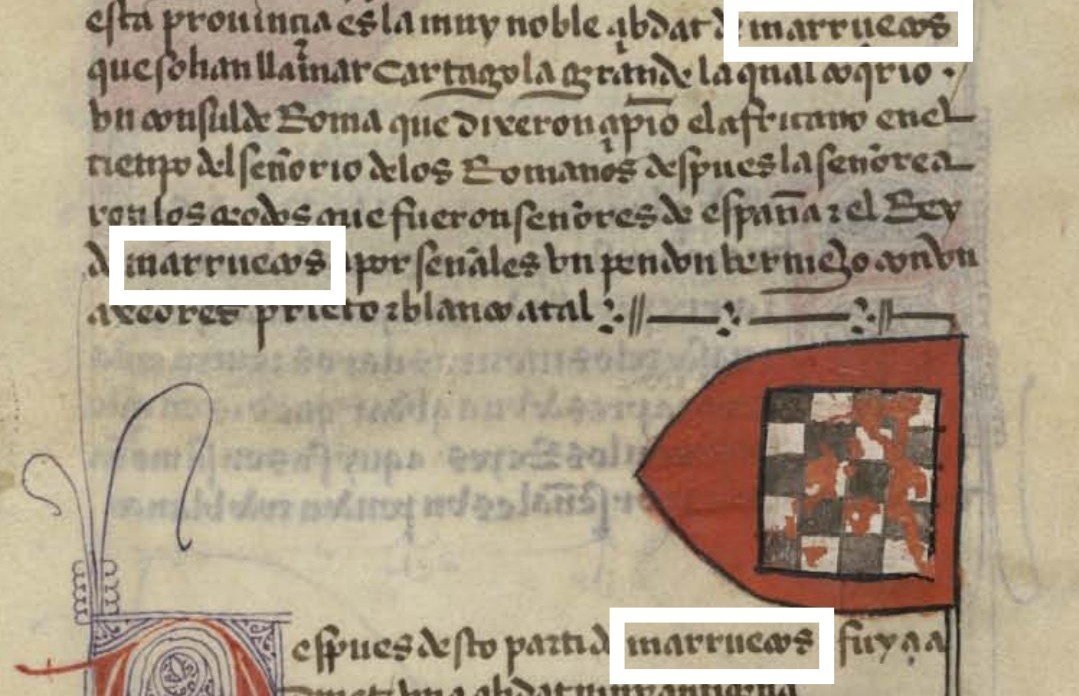 esta prouinçia es la muy noble çibdat de marruecos
que solian llamar Cartago la grande la qual conqrio
vn consul de Roma que dixeron çipio el africano en el
tienpo del señorio delos Romanos despues la señorea
ron los godos que fueron señores de españa τ el Rey
de marruecos por señales vn pendon bermejo con vn
axedres prieto τ blanco atal
espues desto parti de marruecos fuy a
vna çibdat muy antigua